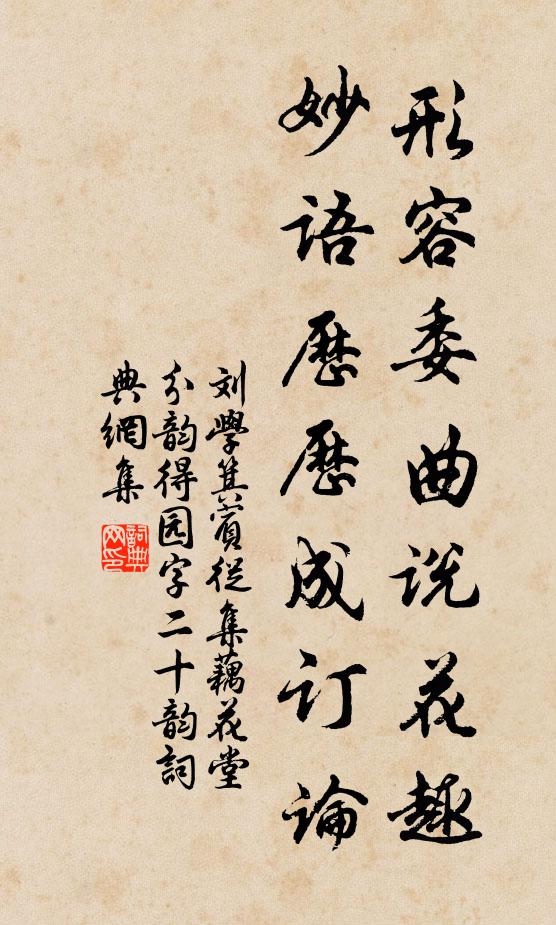 形容委曲说花趣
妙语歷歷成订論
刘學箕賓從集藕花堂
分韵得园字二十韵詞
典網集
詞典
网印